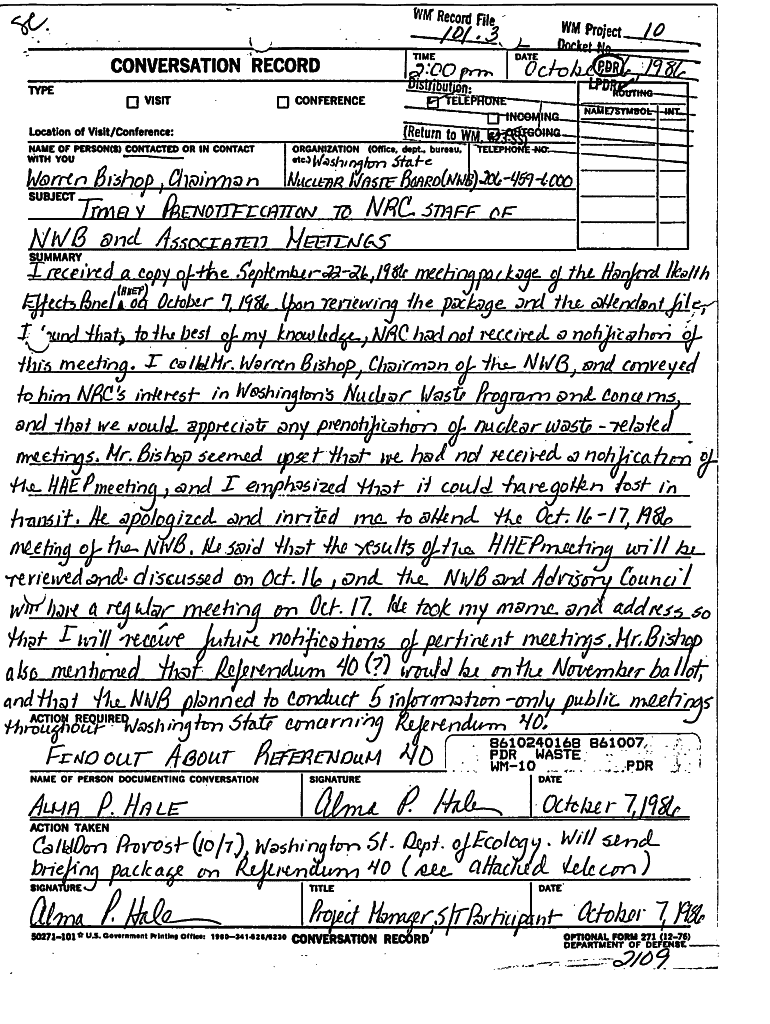 WM Record File
101.3
WM Project 10
Docket No.
PDR
LPDR
Distribution:
(Return to WM, 623-SS)
CONVERSATION RECORD
TIME
2:00 pm
DATE
October 6, 1986
TYPE
VISIT
CONFERENCE
TELEPHONE
INCOMING
OUTGOING
ROUTING
NAME/SYMBOL INT.
Location of Visit/Conference:
NAME OF PERSON(S) CONTACTED OR IN CONTACT
WITH YOU
Warren Bishop, Chairman
ORGANIZATION (Office, dept., bureau,
etc.) Washington State
Nuclear Waste Board (NWB)
TELEPHONE NO.
206-459-6000
SUBJECT
Timely Prenotification to NRC staff of
NWB and Associated Meetings
SUMMARY
I received a copy of the September 22-26, 1986 meeting package of the Hanford Health
Effects Panel (HHEP) on October 7, 1986. Upon reviewing the package and the attendant file,
I found that, to the best of my knowledge, NRC had not received a notification of
this meeting. I called Mr. Warren Bishop, Chairman of the NWB, and conveyed
to him NRC's interest in Washington's Nuclear Waste Program and concerns,
and that we would appreciate any prenotification of nuclear waste-related
meetings. Mr. Bishop seemed upset that we had not received a notification of
the HHEP meeting, and I emphasized that it could have gotten lost in
transit. He apologized and invited me to attend the Oct. 16-17, 1986
meeting of the NWB. He said that the results of the HHEP meeting will be
reviewed and discussed on Oct. 16, and the NWB and Advisory Council
will have a regular meeting on Oct. 17. He took my name and address so
that I will receive future notifications of pertinent meetings. Mr. Bishop
also mentioned that Referendum 40 (?) would be on the November ballot,
and that the NWB planned to conduct 5 information-only public meetings
throughout Washington State concerning Referendum 40.
ACTION REQUIRED
Find out About Referendum 40
8610240168 861007
PDR WASTE
WM-10 PDR
NAME OF PERSON DOCUMENTING CONVERSATION
Alma P. Hale
SIGNATURE
Alma P. Hale
DATE
October 7, 1986
ACTION TAKEN
Called Don Provost (10/7), Washington St. Dept. of Ecology. Will send
briefing package on Referendum 40 (see attached telecon)
SIGNATURE
Alma P. Hale
TITLE
Project Manager, S/T Participant
DATE
October 7, 1986
50271-101 ☆ U.S. Government Printing Office: CONVERSATION RECORD
OPTIONAL FORM 271 (12-76)
DEPARTMENT OF DEFENSE
2109